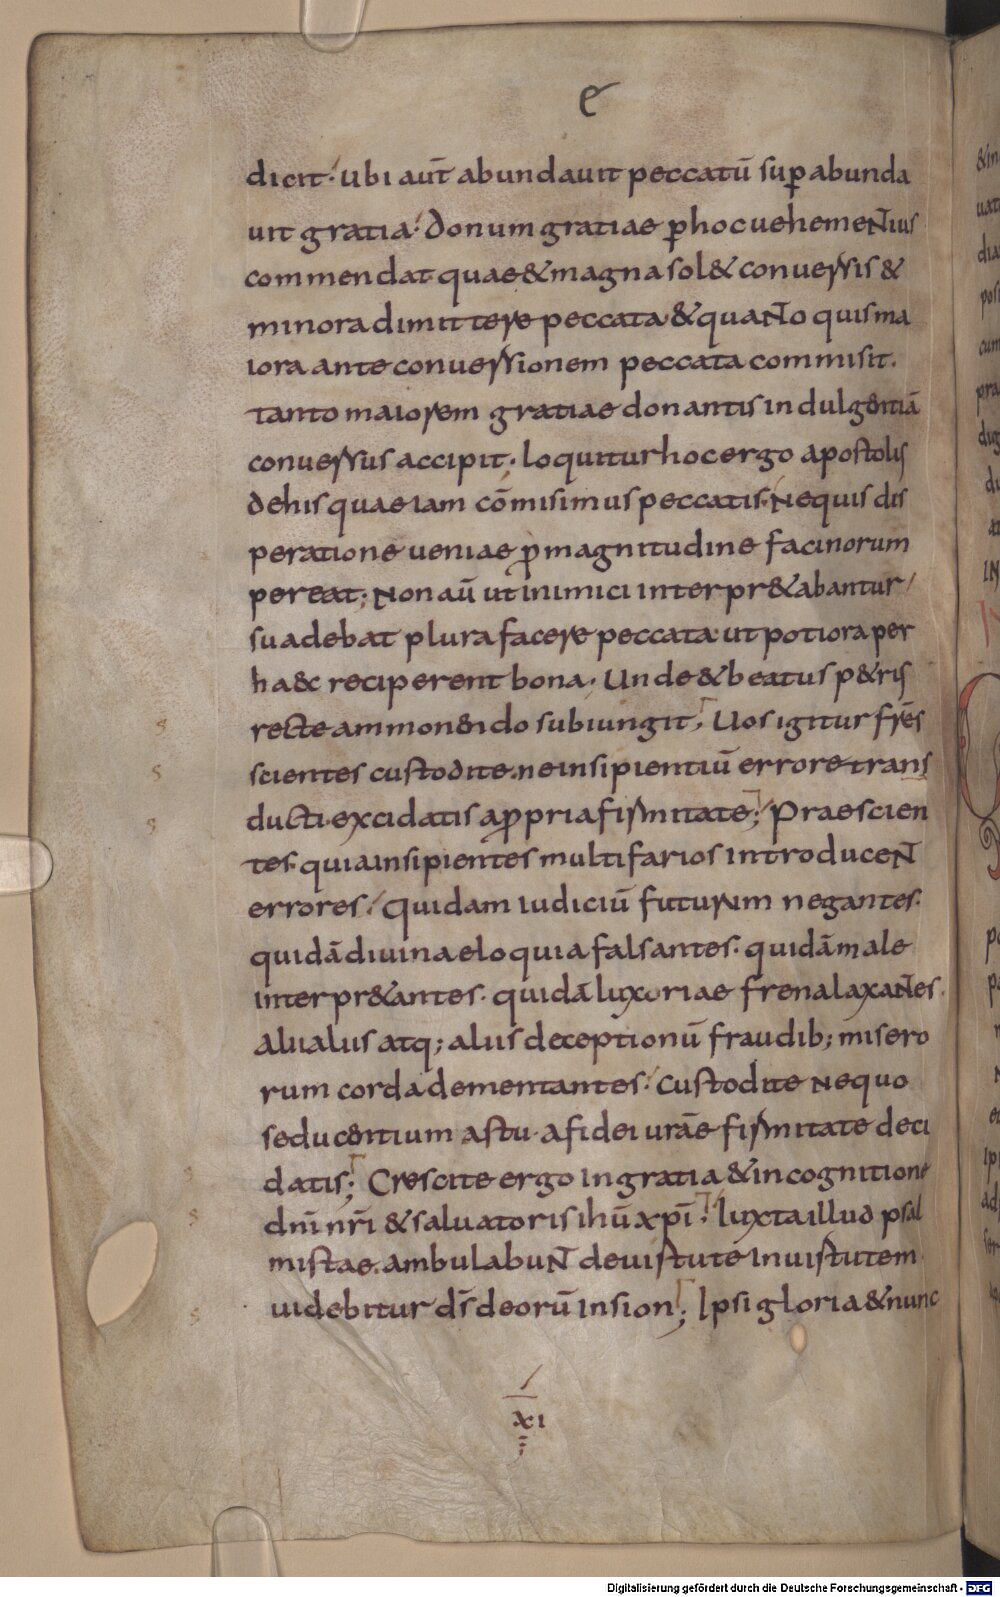 e
dicit· ubi aut̄ abundauit peccatū suꝑabunda
uit gratia· donum gratiae ꝑ hoc uehemeNtius
commendat quae & magna sol& conuersis &
minora dimittere peccata· & quaNto quis ma
iora ante conuersionem peccata commisit·
tanto maiorem gratiae donantis indulgentiā
conuersus accipit· loquitur hoc ergo apostolis
de his quae iam cōmisimus peccatis· Ne quis dis
peratione ueniae ꝓ magnitudine facinorum
pereat; Non aū ut inimici interpr&abantur
suadebat plura facere peccata· ut potiora per
ha&c reciperent bona· Unde & beatus p&ris
recte ammonendo subiungit; Uos igitur fr̄es
scientes custodite· ne insipientiū errore trans
ducti· excidatis a ꝓpria firmitate; Praescien
tes· quia insipientes multifarios introduceNt
errores· Quidam iudiciū futurum negantes·
quidā diuina eloquia falsantes· quidā male
interpr&antes· quidā luxoriae frena laxaNtes·
alii alus atq; alus deceptionū fraudib; misero
rum corda dementantes· Custodite Ne quo
seducentium astu· a fidei urāe firmitate deci
datis; Crescite ergo in gratia & in cognitione
dnī nrī & saluatoris ihū xpī; Iuxta illud psal
mistae· ambulabuNt de uirtute in uirtutem·
uidebitur ds̄ deorū in sion; Ipsi gloria & nunc
xi
Digitalisierung gefördert durch die Deutsche Forschungsgemeinschaft - DFG